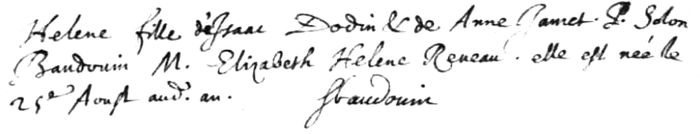 Helene fille d'Isaac Dodin & de Anne Jamet. P. Solon
Baudouin M. Elizabeth Helene Reneau. elle est née le
25e Aoust aud. an. SBaudouin